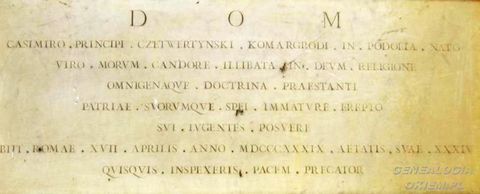 D O M
CASIMIRO . PRINCIPI . CZETWERTYNSKI . KOMARGRODI . IN . PODOLIA . NATO
VIRO . MORUM . CANDORE . ILLIBATA . IN . DEUM . RELIGIONE
OMNIGENAQUE . DOCTRINA . PRAESTANTI
PATRIAE . SUORUMQUE . SPEI . IMMATURE . EREPTO
SUI . LUGENTES . POSUERE
OBIIT . ROMAE . XVII . APRILIS . ANNO . MDCCCXXXIX . AETATIS . SUAE . XXXIV
QUISQUIS . INSPEXERIS . PACEM . PRECATOR
GENEALOGIA
OKIEM.PL